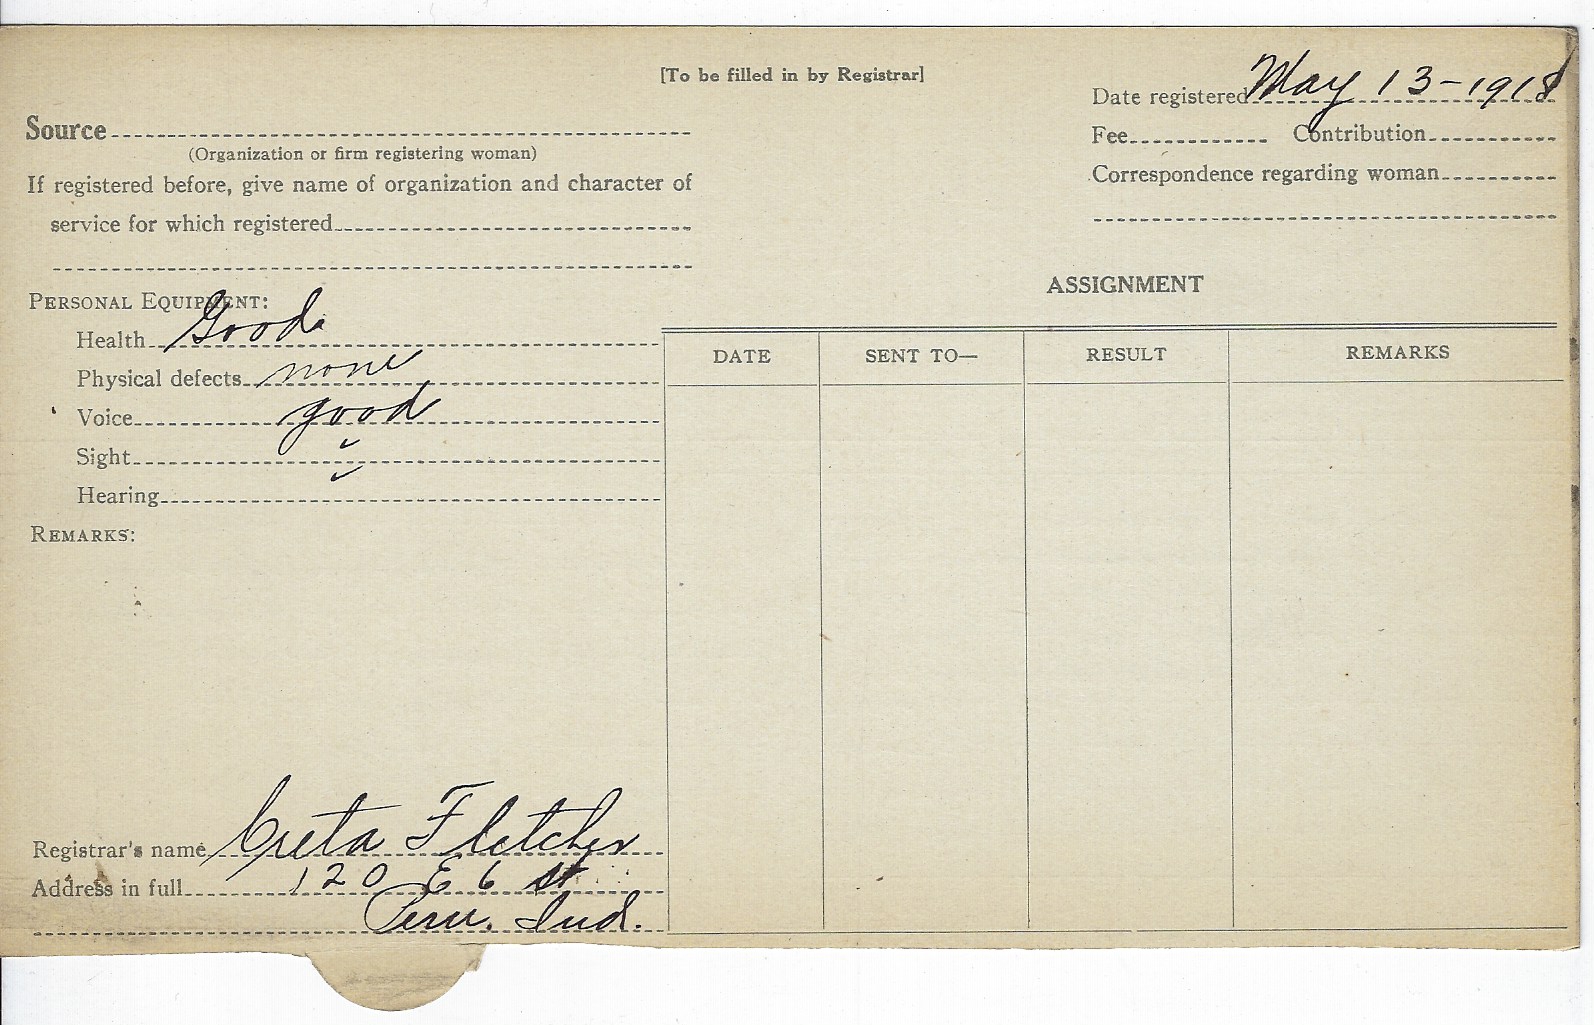 [To be filled in by Registrar]
Date registered May 13-1918
Source
(Organization or firm registering woman)
Fee Contribution
If registered before, give name of organization and character of
service for which registered
Correspondence regarding woman
ASSIGNMENT
PERSONAL EQUIPMENT:
Health Good
Physical defects none
Voice good
Sight ✓
Hearing ✓
REMARKS:
DATE SENT TO— RESULT REMARKS
Registrar's name Creta Fletcher
Address in full 120 E 6 st
Peru. Ind.